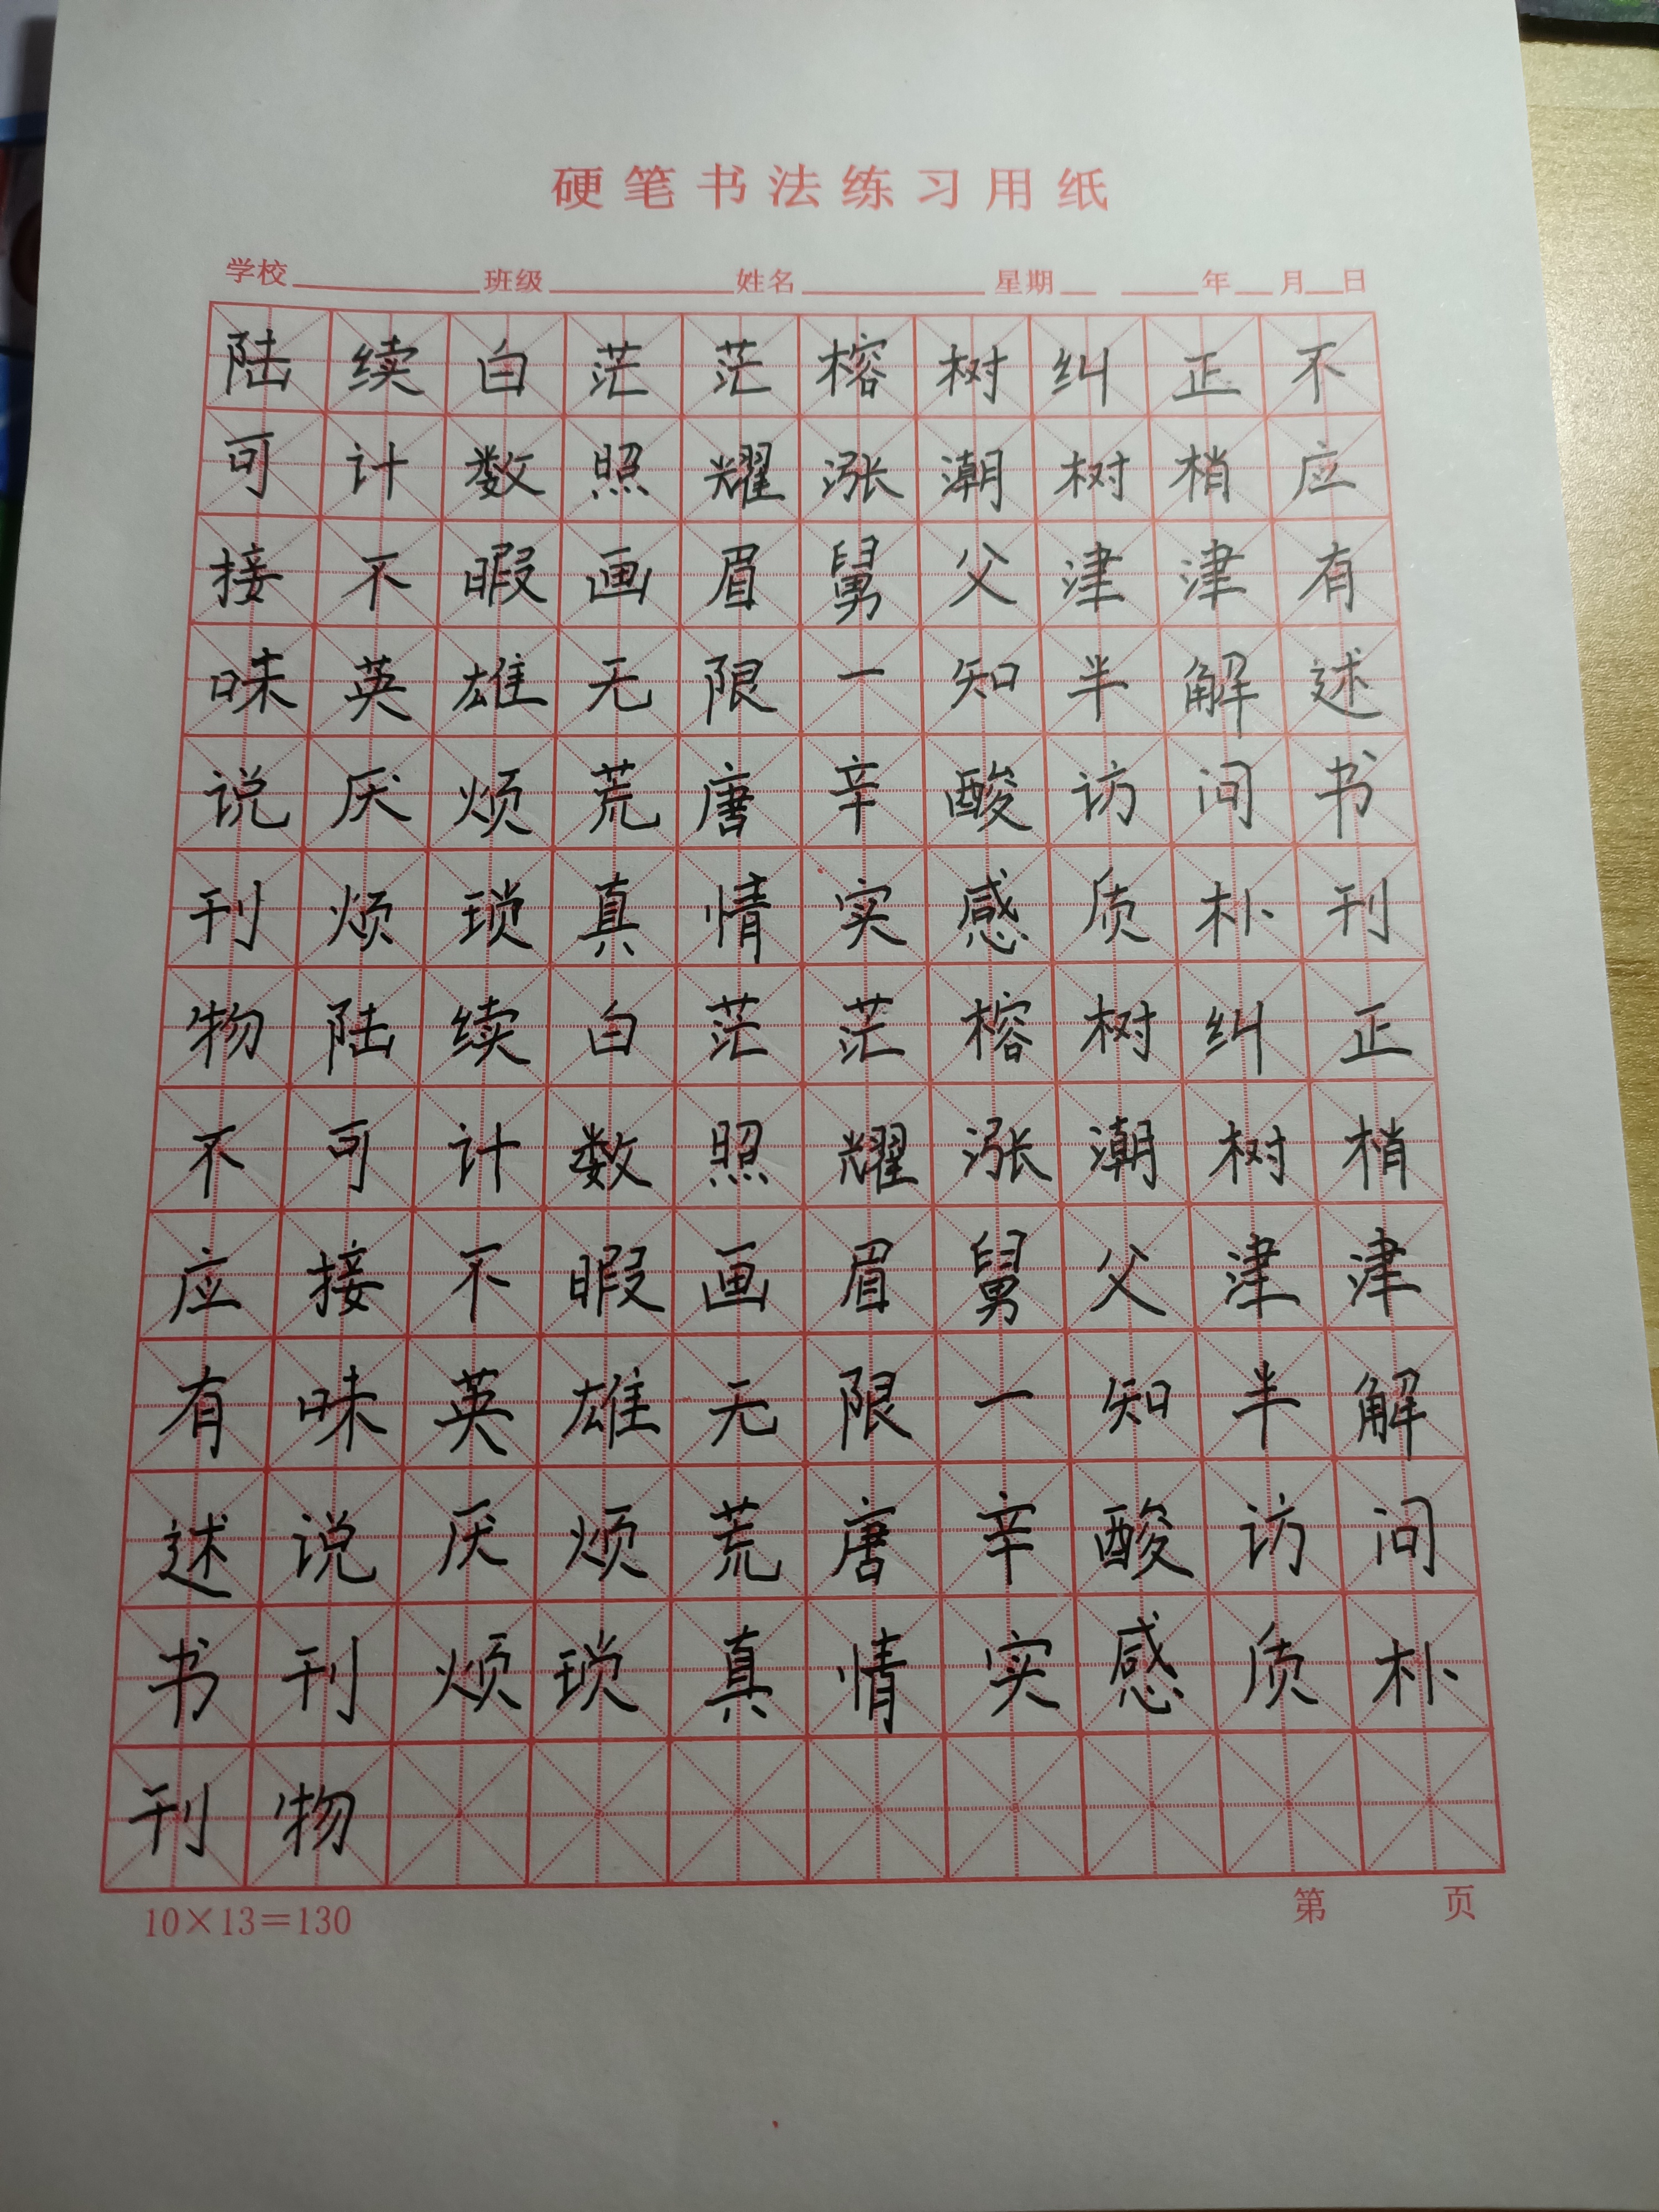 硬笔书法练习用纸
学校 班级 姓名 星期 年 月 日
陆续白茫茫榕树纠正不
可计数照耀涨潮树梢应
接不暇画眉舅父津津有
味英雄无限一知半解述
说厌烦荒唐辛酸访问书
刊烦琐真情实感质朴刊
物陆续白茫茫榕树纠正
不可计数照耀涨潮树梢
应接不暇画眉舅父津津
有味英雄无限一知半解
述说厌烦荒唐辛酸访问
书刊烦琐真情实感质朴
刊物
10×13=130 第 页